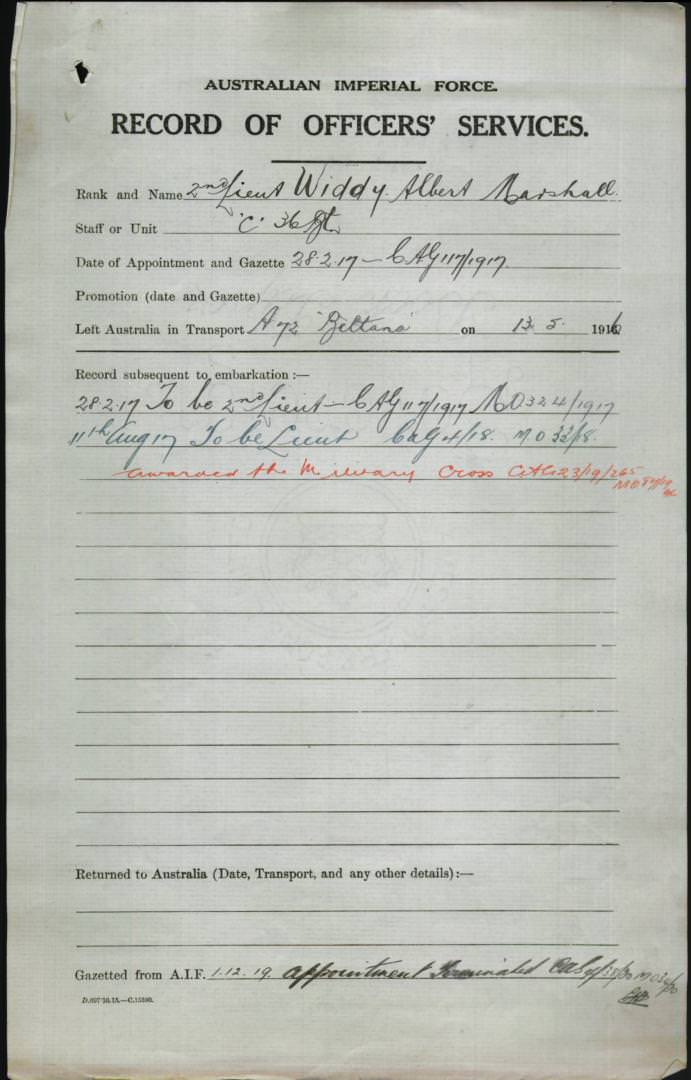 AUSTRALIAN IMPERIAL FORCE.
RECORD OF OFFICERS' SERVICES.
Rank and Name 2nd Lieut Widdy Albert Marshall.
Staff or Unit "C" 36 Bt
Date of Appointment and Gazette 28.2.17 — CAG 117/1917.
Promotion (date and Gazette)
Left Australia in Transport A 72 "Beltana" on 13. 5. 1916
Record subsequent to embarkation :—
28.2.17 To be 2nd Lieut — CAG 117/1917 MO 324/1917
11th Aug 17 To be Lieut CAG 4/18. M.O 33/18.
awarded the Military Cross CAG 23/19/265
Returned to Australia (Date, Transport, and any other details) :—
Gazetted from A.I.F. 1.12.19. Appointment Terminated